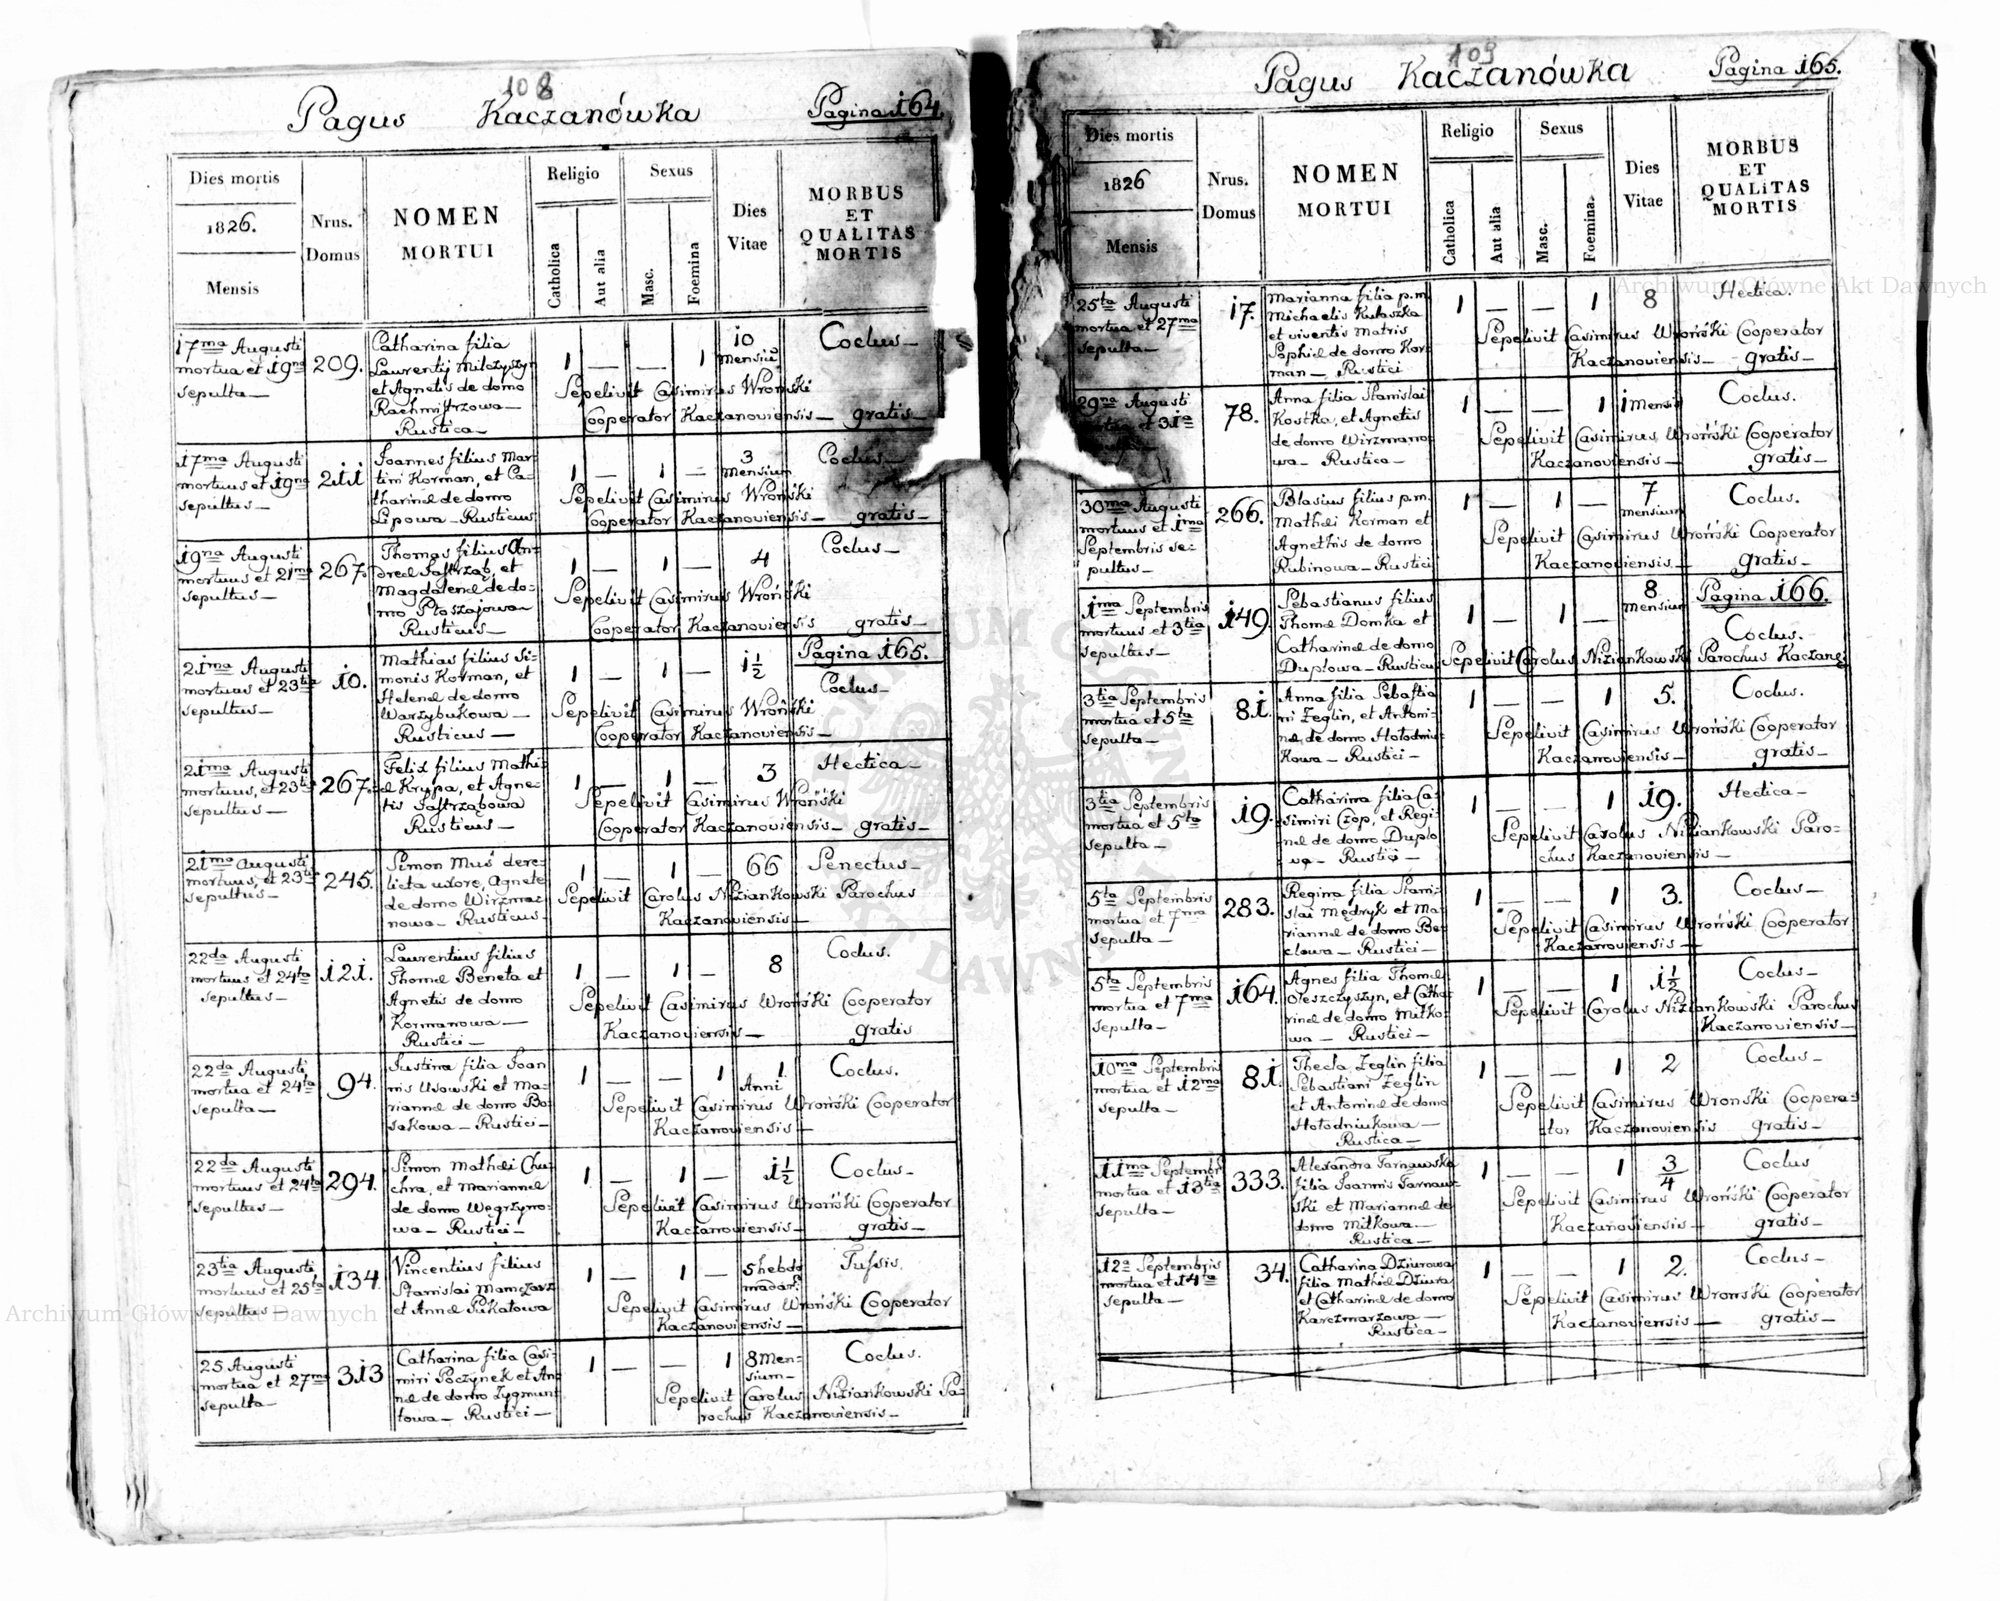 108
Pagus Kaczanówka Pagina 164.
Dies mortis
1826.
Mensis
Nrus.
Domus
NOMEN
MORTUI
Religio
Catholica
Aut alia
Sexus
Masc.
Foemina
Dies
Vitae
MORBUS
ET
QUALITAS
MORTIS
17ma Augusti
mortua et 19na
sepulta
209.
Catharina filia
Laurentij
et Agnetis de domo
Rachmistrzowa
Rustica
1 — — 1
10
Mensiũ
Coclus
Sepelivit Casimirus Wroński
Cooperator Kaczanoviensis gratis
17ma Augusti
mortuus et 19na
sepultus
211
Joannes filius Mar=
tini Korman, et Ca=
tharinæ de domo
Lipowa Rusticus
1 — 1 —
3
Mensium
Coclus
Sepelivit Casimirus Wroński
Cooperator Kaczanoviensis gratis
19na Augusti
mortuus et 21ma
sepultus
267.
Thomas filius An=
dreæ Jastrząb, et
Magdalenæ de do=
mo Ptaszajowa
Rusticus
1 — 1 — 4 Coclus
Sepelivit Casimirus Wroński
Cooperator Kaczanoviensis gratis
21ma Augusti
mortuus et 23tia
sepultus
10.
Mathias filius Si=
monis Korman, et
Helenæ de domo
Warzybukowa
Rusticus
1 — 1 — 1½
Pagina 165.
Coclus
Sepelivit Casimirus Wroński
Cooperator Kaczanoviensis
21ma Augusti
mortuus, et 23tia
sepultus
267.
Felix filius Mathi=
æ Krupa, et Agne=
tis Jastrząbowa
Rusticus
1 — 1 — 3 Hectica
Sepelivit Casimirus Wroński
Cooperator Kaczanoviensis gratis
21ma Augusti
mortuus, et 23tia
sepultus
245.
Simon Muś dere=
licta uxore, Agnete
de domo Wirzma=
nowa Rusticus
1 — 1 — 66 Senectus
Sepelivit Carolus Niziankowski Parochus
Kaczanoviensis
22da Augusti
mortuus et 24ta
sepultus
121.
Laurentius filius
Thomæ Beneta et
Agnetis de domo
Kormanowa
Rustici
1 — 1 — 8 Coclus.
Sepelivit Casimirus Wroński Cooperator
Kaczanoviensis gratis
22da Augusti
mortua et 24ta
sepulta
94.
Justina filia Joan
nis Usowski et Ma=
riannæ de domo Bo=
sakowa Rustici
1 — — 1
1.
Anni
Coclus.
Sepelivit Casimirus Wroński Cooperator
Kaczanoviensis
22da Augusti
mortuus et 24ta
sepultus
294.
Simon Mathæi Chu=
chra, et Mariannæ
de domo Węgrzyno=
wa Rustici
1 — 1 — 1½ Coclus
Sepelivit Casimirus Wroński Cooperator
Kaczanoviensis gratis
23tia Augusti
mortuus et 25ta
sepultus
134.
Vincentius filius
Stanislai Mamczarz
et Annæ Pukatowa
1 — 1 —
5 hebdo
madarũ
Tussis.
Sepelivit Casimirus Wroński Cooperator
Kaczanoviensis
25 Augusti
mortua et 27ma
sepulta
313
Catharina filia Casi=
miri Poczynek et An=
næ de domo Zygmun=
towa Rustici
1 — — 1
8 Men=
sium
Coclus.
Sepelivit Carolus Niziankowski Pa=
rochus Kaczanoviensis
109
Pagus Kaczanówka Pagina 165.
Dies mortis
1826
Mensis
Nrus.
Domus
NOMEN
MORTUI
Religio
Catholica
Aut alia
Sexus
Masc.
Foemina.
Dies
Vitae
MORBUS
ET
QUALiTAS
MORTIS
25ta Augusti
mortua et 27ma
sepulta
17.
Marianna filia p.m.
Michaelis Kułaszka
et viventis matris
Sophiæ de domo Kor=
man Rustici
1 — — 1 8 Hectica.
Sepelivit Casimirus Wroński Cooperator
Kaczanoviensis gratis
29na Augusti
mortua et 31a
78.
Anna filia Stanislai
Kostka, et Agnetis
de domo Wirzmano=
wa Rustica
1 — — 1 1 Mensis Coclus.
Sepelivit Casimirus Wroński Cooperator
Kaczanoviensis gratis
30ma Augusti
mortuus et 1ma
Septembris se=
pultus
266.
Blasius filius p.m.
Mathæi Korman et
Agnethis de domo
Rubinowa Rustici
1 — 1 —
7
mensium
Coclus.
Sepelivit Casimirus Wroński Cooperator
Kaczanoviensis gratis
1ma Septembris
mortuus et 3tia
sepultus
149.
Sebastianus filius
Thomæ Domka et
Catharinæ de domo
Duplowa Rusticus
1 — 1 —
8
Mensium
Pagina 166.
Coclus.
Sepelivit Carolus Niziankowski Parochus Kaczanę
3tia Septembris
mortua et 5ta
sepulta
81.
Anna filia Sebastia
ni Zeglin, et Antoni=
næ, de domo Hołodniu=
kowa Rustici
1 — — 1 5. Coclus.
Sepelivit Casimirus Wroński Cooperator
Kaczanoviensis gratis
3tia Septembris
mortua et 5ta
sepulta
19.
Catharina filia Ca=
simiri Czop, et Regi=
næ de domo Duplo
wa Rustici
1 — — 1 19. Hectica
Sepelivit Carolus Niziankowski Paro=
chus Kaczanoviensis
5ta Septembris
mortua et 7ma
sepulta
283.
Regina filia Stani=
slai Mędryk et Ma=
riannæ de domo Be=
clowa Rustici
1 — — 1 3. Coclus
Sepelivit Casimirus Wroński Cooperator
Kaczanoviensis
5ta Septembris
mortua et 7ma
sepulta
164.
Agnes filia Thomæ
Oleszczyszyn, et Catha=
rinæ de domo Mitko=
wa Rustici
1 — — 1 1½ Coclus
Sepelivit Carolus Niziankowski Parochus
Kaczanoviensis
10ma Septembris
mortua et 12ma
sepulta
81.
Thecla Zeglin filia
Sebastiani Zeglin
et Antoninæ de domo
Hołodniukowa
Rustica
1 — — 1 2 Coclus
Sepelivit Casimirus Wronski Coopera=
tor Kaczanoviensis gratis
11ma Septembr
mortua et 13tia
sepulta
333.
Alexandra Tarnawska
filia Joannis Tarnaw=
ski et Mariannæ de
domo Mitkowa
Rustica
1 — — 1 3/4 Coclus
Sepelivit Casimirus Wroński Cooperator
Kaczanoviensis gratis
12a Septembris
mortua et 14ta
sepulta
34.
Catharina Dziurowa
filia Mathiæ Dziura
et Catharinæ de domo
Karczmarzowa
Rustica
1 — — 1 2. Coclus
Sepelivit Casimirus Wronski Cooperator
Kaczanoviensis gratis
Archiwum Główne Akt Dawnych
Archiwum Główne Akt Dawnych